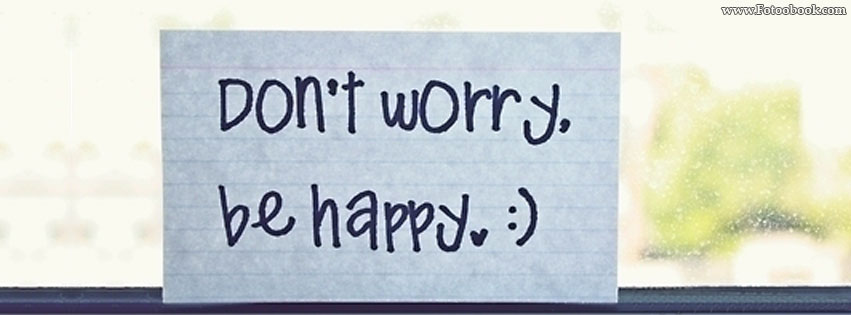 www.Fotoobook.com
Don't worry,
be happy.♥ :)